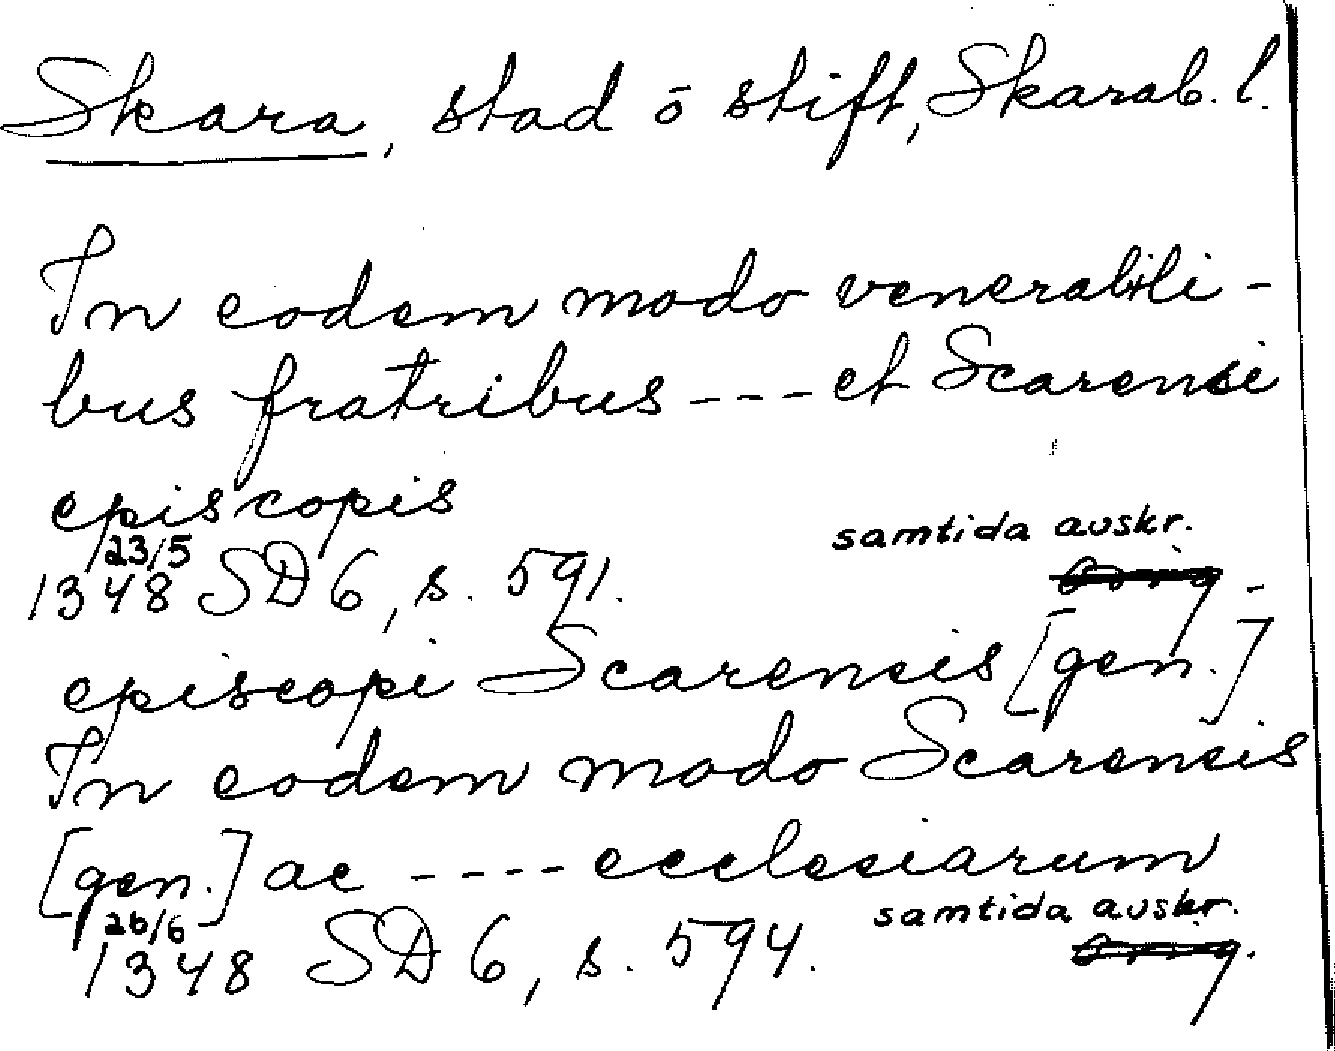 Skara, stad ō stift, Skarab. l.
In eodem modo venerabili-
bus fratribus --- et Scarensi
episcopis
samtida avskr.
23/5
1348 SD 6, s. 591. Orig.
episcopi Scarensis [gen.]
In eodem modo Scarensis
[gen.] ac ---- ecclesiarum
26/6 samtida avskr.
1348 SD 6, s. 594. Orig.